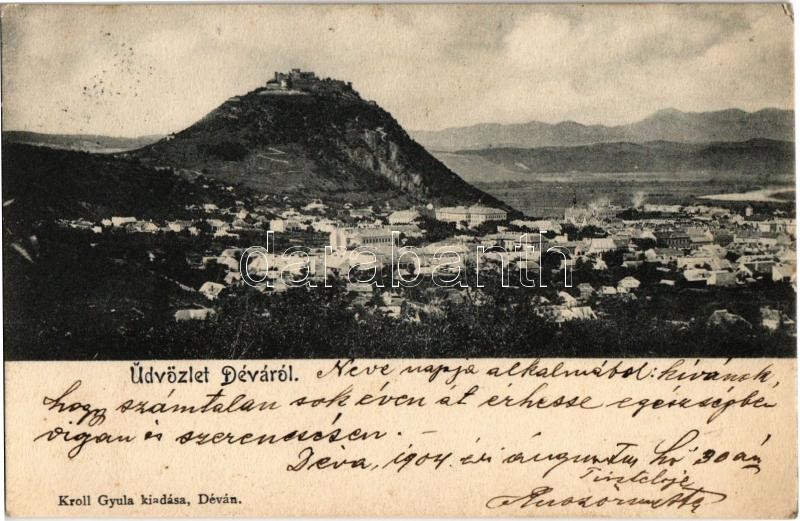 darabanth
Üdvözlet Déváról. Neve napja alkalmából: kívánok,
hogy számtalan sok éven át érhesse egészségbe
vígan és szerencsésen. –
Déva, 1904. évi augusztus hó 30án
Tisztelője
Kroll Gyula kiadása, Déván.